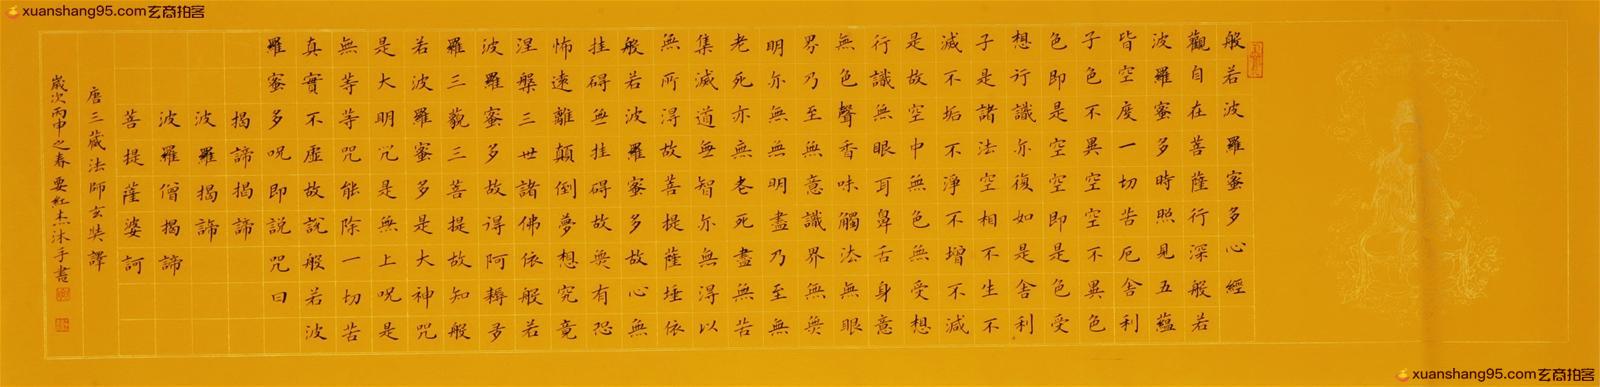 xuanshang95.com玄商拍客
xuanshang95.com玄商拍客
般若波羅蜜多心經
觀自在菩薩行深般若
波羅蜜多時照見五蘊
皆空度一切苦厄舍利
子色不異空空不異色
色即是空空即是色受
想行識亦復如是舍利
子是諸法空相不生不
滅不垢不淨不增不減
是故空中無色無受想
行識無眼耳鼻舌身意
無色聲香味觸法無眼
界乃至無意識界無無
明亦無無明盡乃至無
老死亦無老死盡無苦
集滅道無智亦無得以
無所得故菩提薩埵依
般若波羅蜜多故心無
挂碍無挂碍故無有恐
怖遠離顛倒夢想究竟
涅槃三世諸佛依般若
波羅蜜多故得阿耨多
羅三藐三菩提故知般
若波羅蜜多是大神咒
是大明咒是無上呪是
無等等咒能除一切苦
真實不虛故說般若波
羅蜜多呪即說咒曰
揭諦揭諦
波羅揭諦
波羅僧揭諦
菩提薩婆訶
唐三藏法師玄奘譯
歲次丙申之春要紅杰沐手書
xuanshang95.com玄商拍客